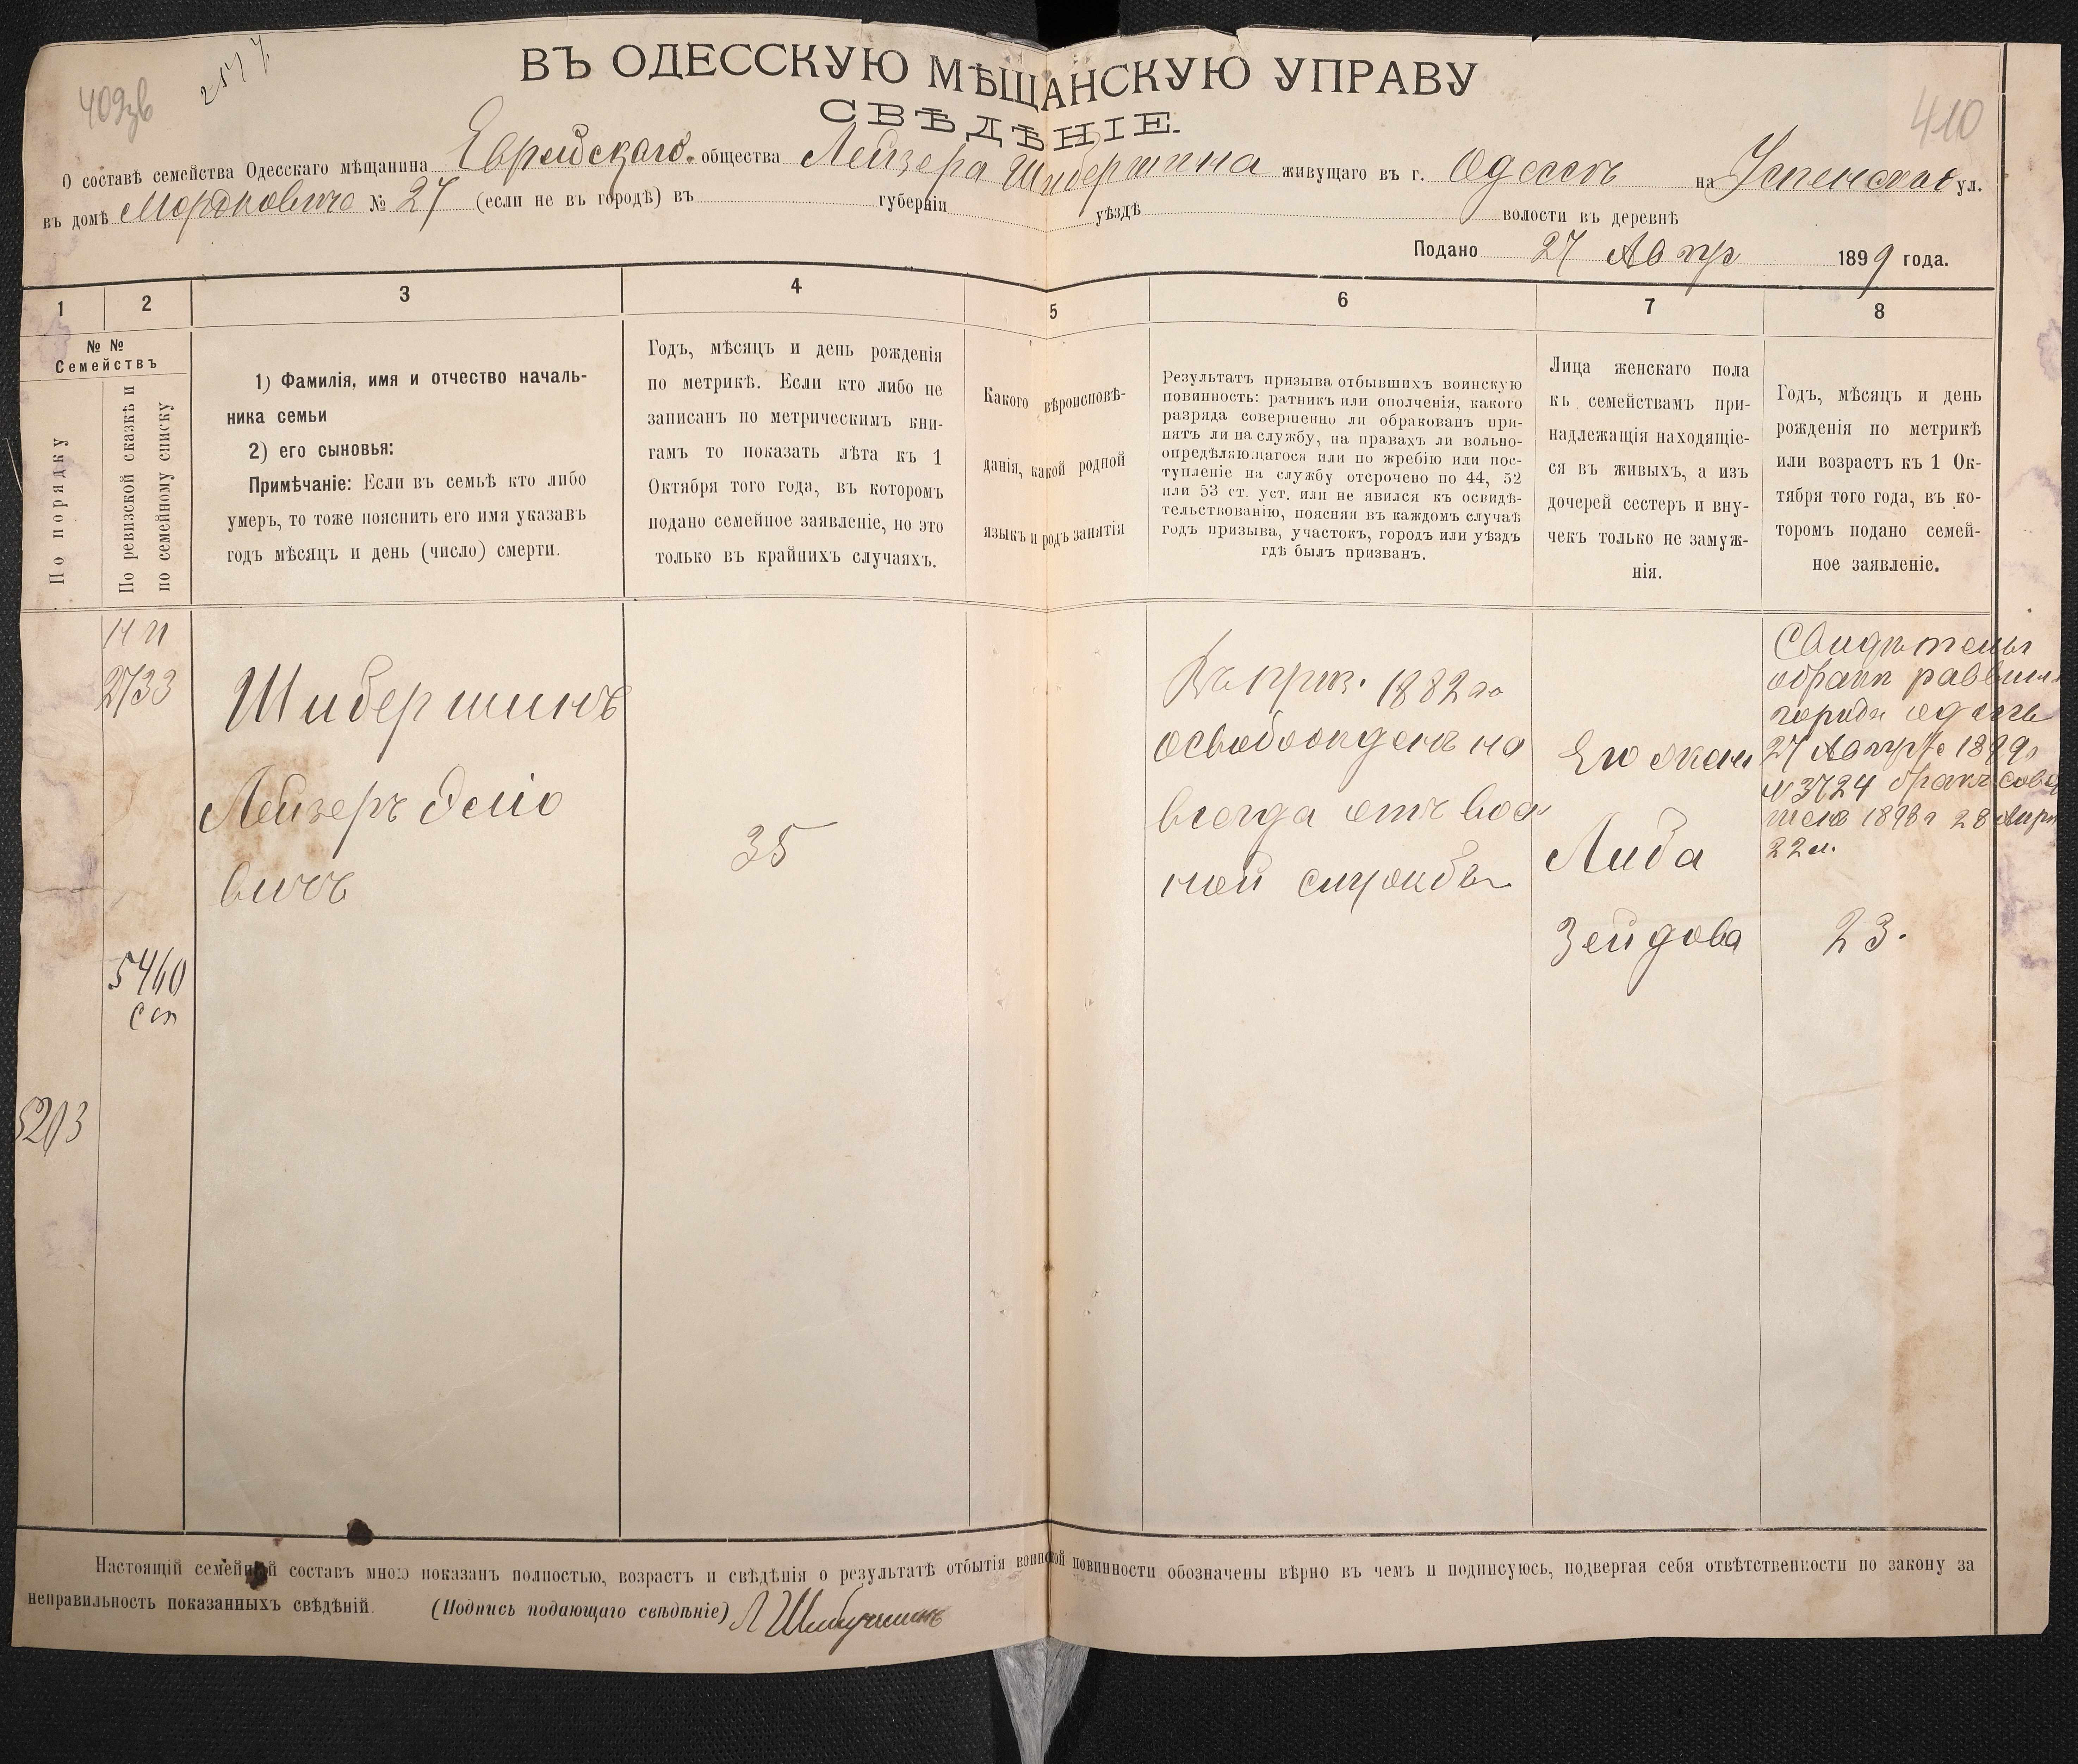 409зв
2517
410
ВЪ ОДЕССКУЮ МѢЩАНСКУЮ УПРАВУ
СВѢДѢНІЕ.
О составѣ семейства Одесскаго мѣщанина Еврейскаго общества Лейзера Шибершина живущаго въ г. Одессѣ на Успенской ул.
въ домѣ Мордковича № 27 (если не въ городѣ) въ губерніи уѣздѣ волости въ деревнѣ
Подано 27 Авгу 1899 года.
1 2 3 4 5 6 7 8
№ №
Семействъ
По порядку
По ревизской сказкѣ и
по семейному списку
1) Фамилія, имя и отчество началь-
ника семьи
2) его сыновья:
Примѣчаніе: Если въ семьѣ кто либо
умеръ, то тоже пояснить его имя указавъ
годъ мѣсяцъ и день (число) смерти.
Годъ, мѣсяцъ и день рожденія
по метрикѣ. Если кто либо не
записанъ по метрическимъ кни-
гамъ то показать лѣта къ 1
Октября того года, въ которомъ
подано семейное заявленіе, но это
только въ крайнихъ случаяхъ.
Какого вѣроисповѣ-
данія, какой родной
языкъ и родъ занятія
Результатъ призыва отбывшихъ воинскую
повинность: ратникъ или ополченія, какого
разряда совершенно ли обракованъ при-
нятъ ли на службу, на правахъ ли вольно-
опредѣляющагося или по жребію или пос-
тупленіе на службу отсрочено по 44, 52
или 53 ст. уст. или не явился къ освидѣ-
тельствованію, поясняя въ каждомъ случаѣ
годъ призыва, участокъ, городъ или уѣздъ
гдѣ былъ призванъ.
Лица женскаго пола
къ семействамъ при-
надлежащія находящіе-
ся въ живыхъ, а изъ
дочерей сестеръ и вну-
чекъ только не замуж-
нія.
Годъ, мѣсяцъ и день
рожденія по метрикѣ
или возрастъ къ 1 Ок-
тября того года, въ ко-
торомъ подано семей-
ное заявленіе.
2733
5460
5203
Шибершинъ
Лейзеръ Осіо
вичъ
35
Въ приз. 1882 го
освобожденъ на
всегда отъ воен
ной службы
Его жена
Либа
Зейдова
Свидѣтель
о бракѣ раввина
города Одессы
27 Августа 1899 г
№ 3724 бракъ совер
шенъ 1898 г 28 Апрѣ
22 л.
23.
Настоящій семейный составъ мною показанъ полностью, возрастъ и свѣдѣнія о результатѣ отбытія воинской повинности обозначены вѣрно въ чемъ и подписуюсь, подвергая себя отвѣтственности по закону за
неправильность показанныхъ свѣдѣній. (Подпись подающаго свѣдѣніе) Л Шибершинъ